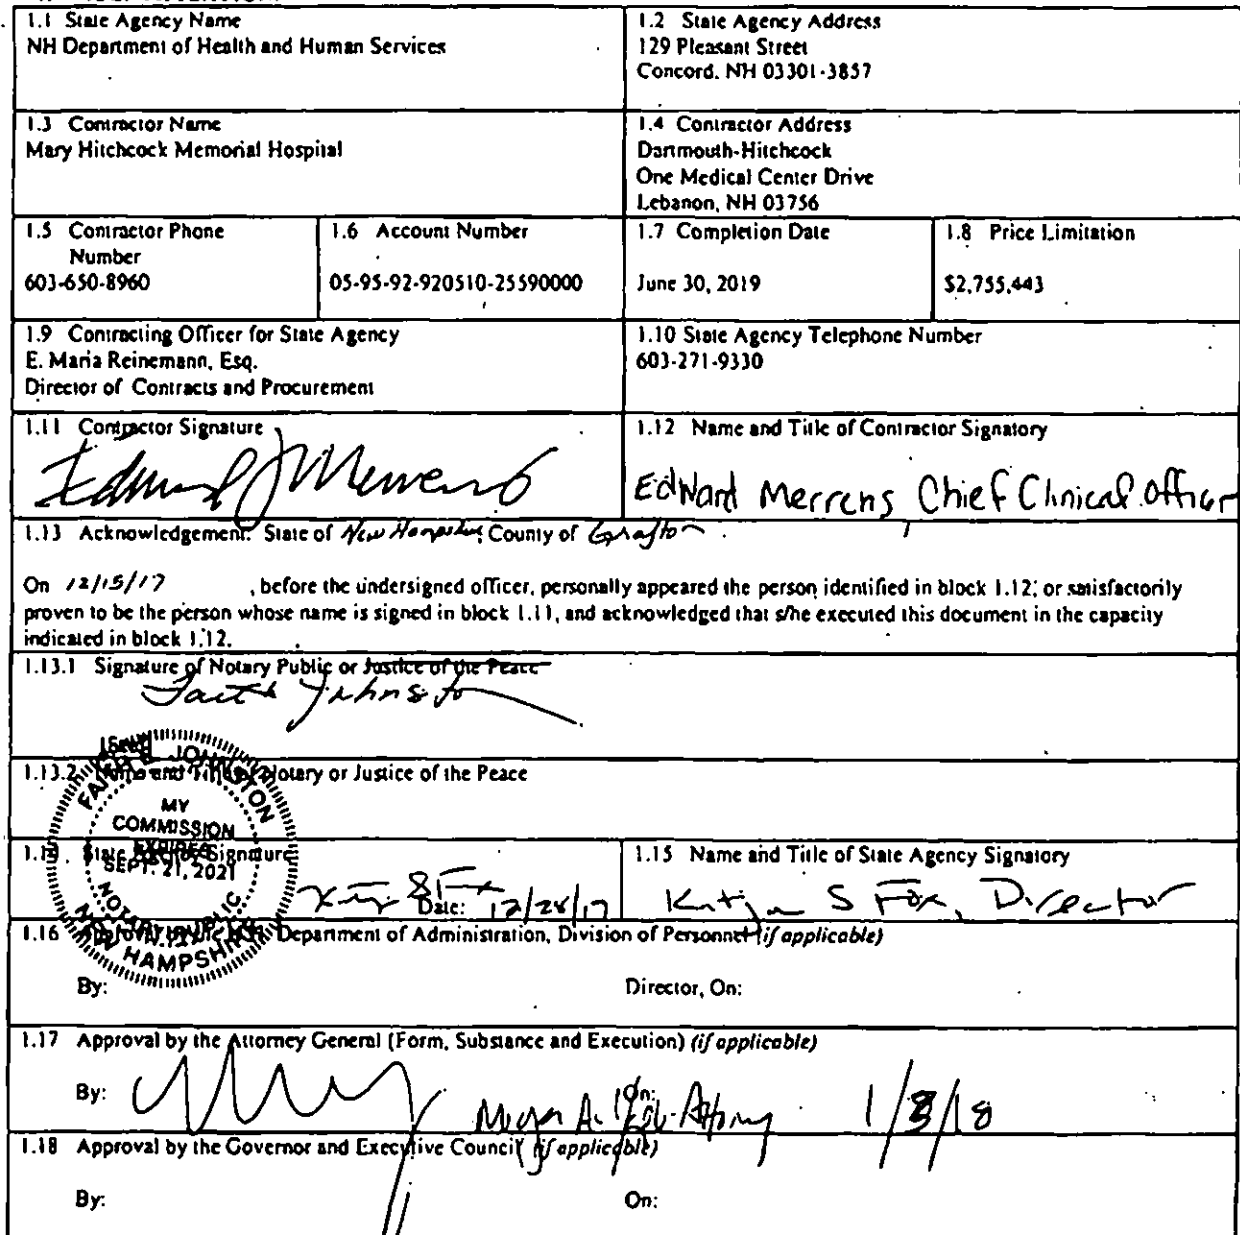 1.1 State Agency Name
NH Department of Health and Human Services
1.2 State Agency Address
129 Pleasant Street
Concord, NH 03301-3857
1.3 Contractor Name
Mary Hitchcock Memorial Hospital
1.4 Contractor Address
Dartmouth-Hitchcock
One Medical Center Drive
Lebanon, NH 03756
1.5 Contractor Phone
Number
603-650-8960
1.6 Account Number
05-95-92-920510-25590000
1.7 Completion Date
June 30, 2019
1.8 Price Limitation
$2,755,443
1.9 Contracting Officer for State Agency
E. Maria Reinemann, Esq.
Director of Contracts and Procurement
1.10 State Agency Telephone Number
603-271-9330
1.11 Contractor Signature
Edward J Merrens
1.12 Name and Title of Contractor Signatory
Edward Merrens, Chief Clinical Officer
1.13 Acknowledgement: State of New Hampshire, County of Grafton
On 12/15/17 , before the undersigned officer, personally appeared the person identified in block 1.12, or satisfactorily
proven to be the person whose name is signed in block 1.11, and acknowledged that s/he executed this document in the capacity
indicated in block 1.12.
1.13.1 Signature of Notary Public or Justice of the Peace
Faith Johnston
[Seal]
1.13.2 Name and Title of Notary or Justice of the Peace
FAITH E. JOHNSTON
MY
COMMISSION
EXPIRES
SEPT. 21, 2021
NOTARY PUBLIC
NEW HAMPSHIRE
1.14 State Agency Signature
Date: 12/28/17
1.15 Name and Title of State Agency Signatory
Katja S Fox, Director
1.16 Department of Administration, Division of Personnel (if applicable)
By: Director, On:
1.17 Approval by the Attorney General (Form, Substance and Execution) (if applicable)
By: On: 1/8/18
1.18 Approval by the Governor and Executive Council (if applicable)
By: On: